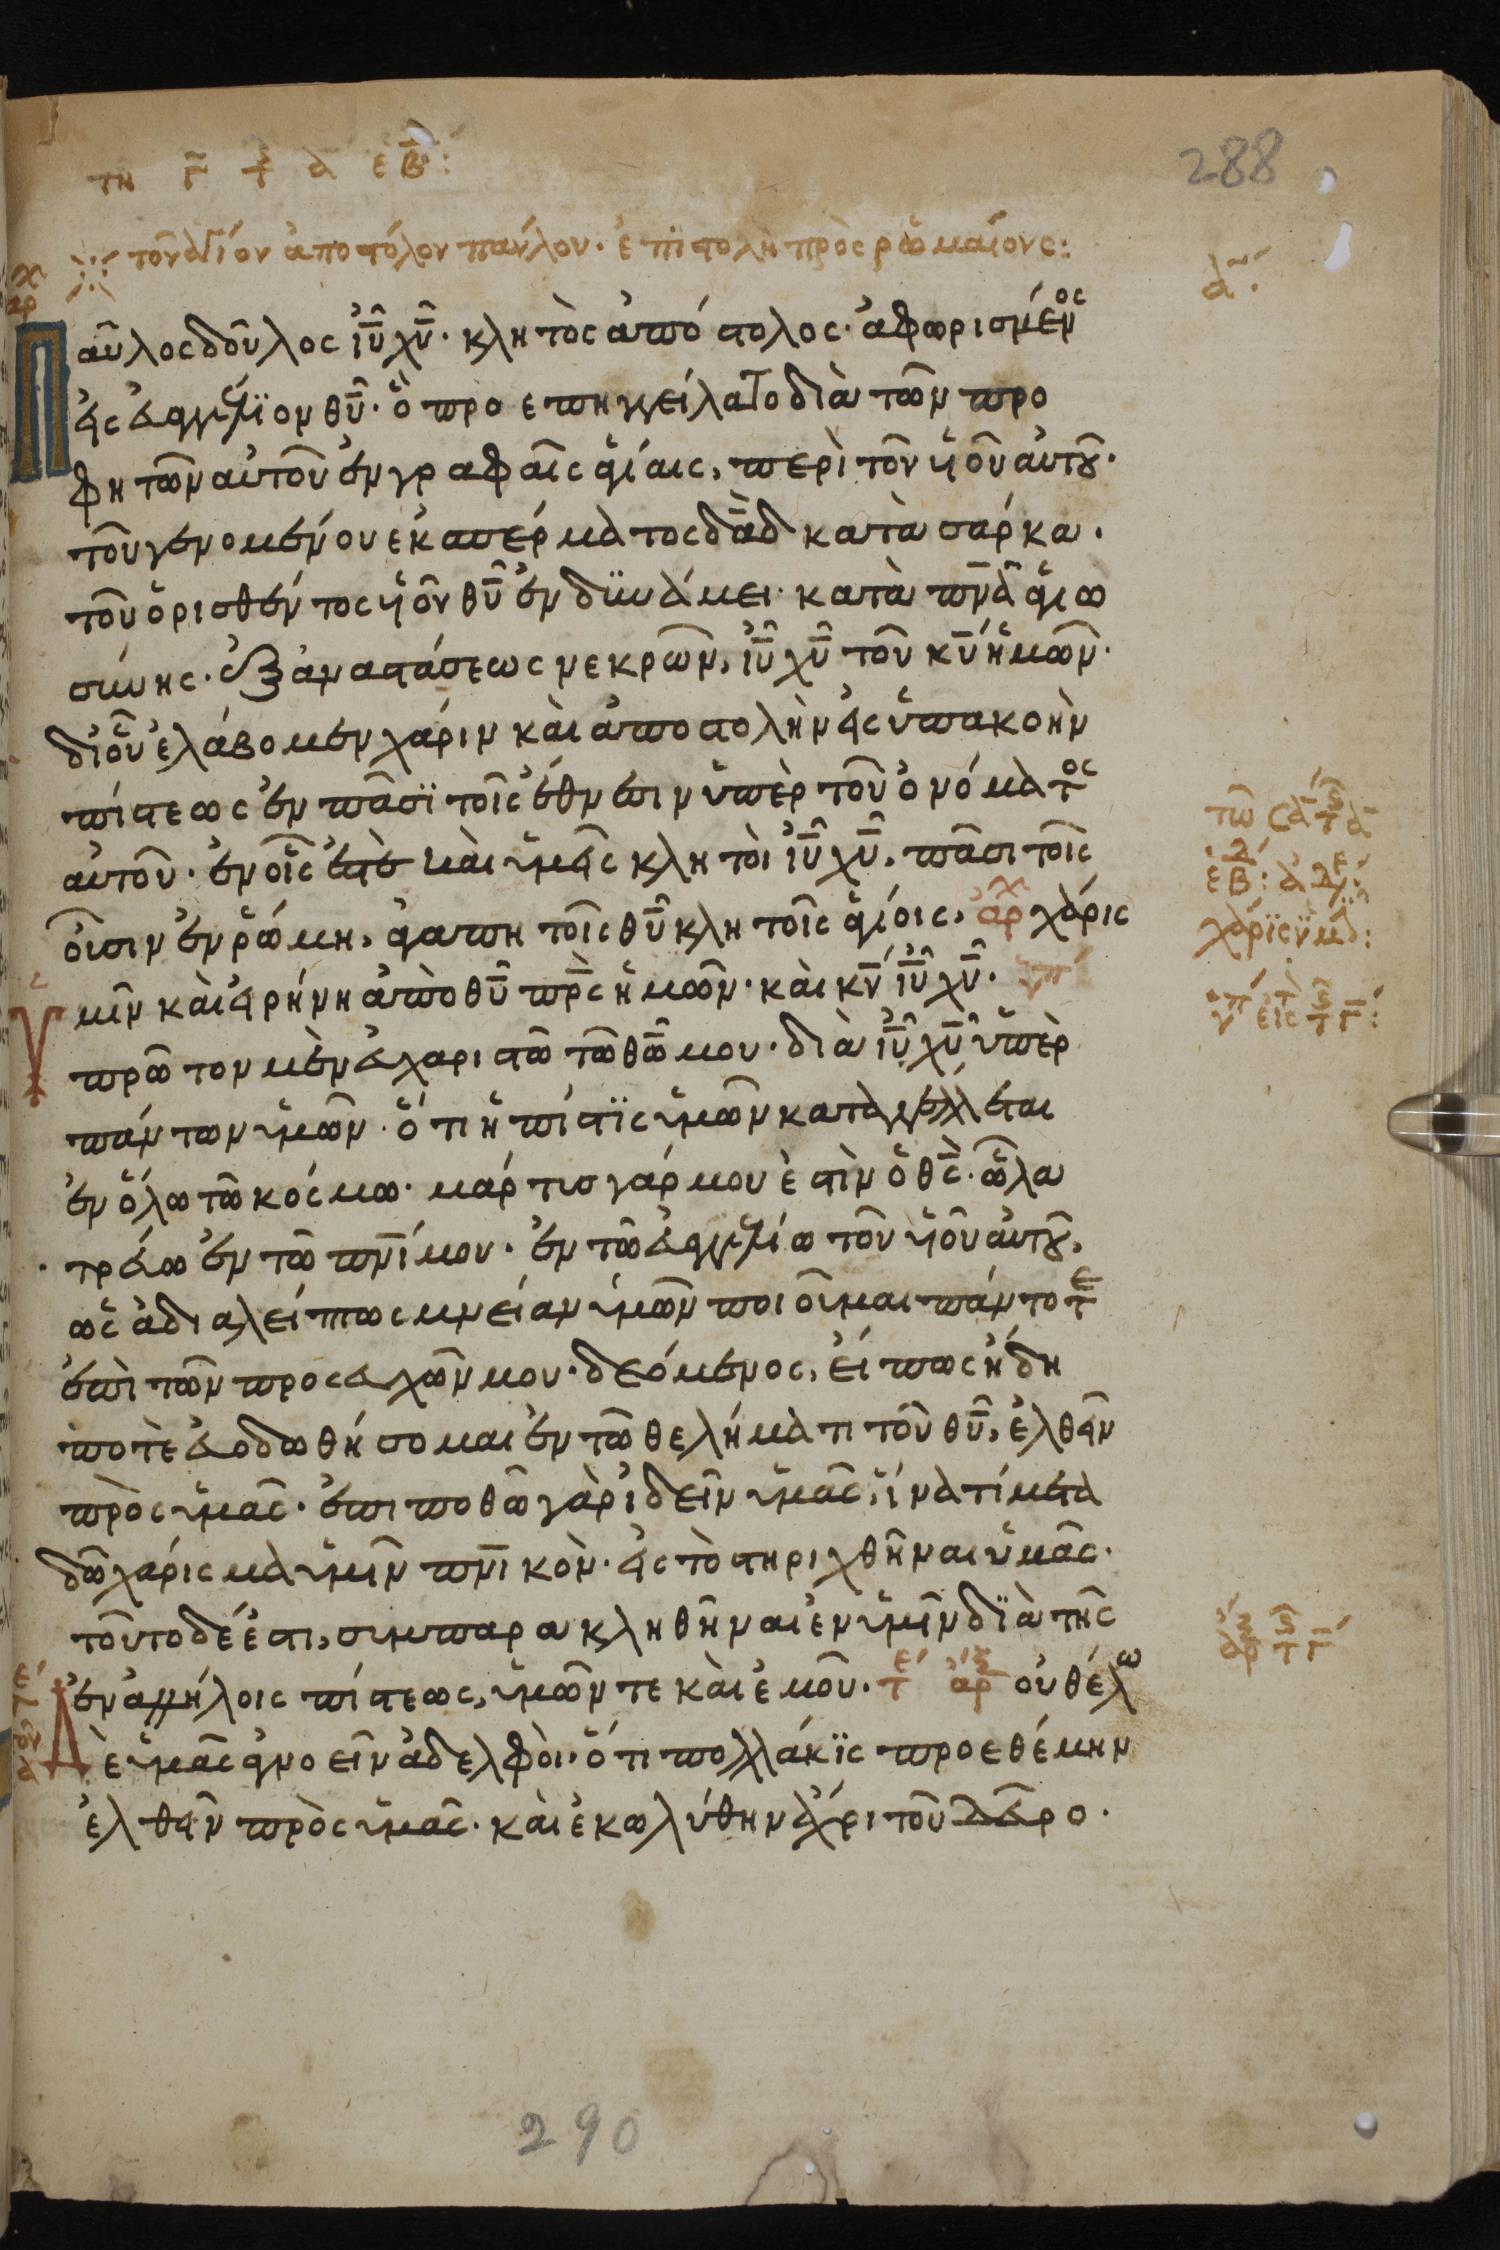 τη Γ̄ ϛ̄ ᾱ ἑβ̄:
288
τοῦ ἁγίου ἀποστόλου παύλου· ἐπιστολὴ πρὸς ῥωμαίους:
ᾱ·
αρχ
Παῦλος δοῦλος ἰῦ χῦ· κλητὸς ἀπόστολος· ἀφωρισμένος
εἰς εὐαγγέλϊον θῦ· ὃ προεπηγγείλατο διὰ τῶν προ
φητῶν αὐτοῦ ἐν γραφαῖς ἁγίαις, περὶ τοῦ ὑιοῦ αὐτοῦ·
τοῦ γενομένου ἐκ σπέρματος δᾱδ κατὰ σάρκα·
τοῦ ὁρισθέντος ὑιοῦ θῦ ἐν δϋνάμει· κατὰ πνᾱ ἁγιω
σύνης· ἐξ ἀναστάσεως νεκρῶν, ἰῦ χῦ τοῦ κῡ ἡμῶν·
δι' οὗ ἐλάβομεν χάριν καὶ ἀποστολὴν εἰς ὑπακοὴν
πίστεως ἐν πᾶσϊ τοῖς ἔθνεσιν ὑπὲρ τοῦ ὀνόματος
αὐτοῦ· ἐν οἷς ἐστὲ καὶ ὑμεῖς κλητοὶ ἰῦ χῦ, πᾶσι τοῖς
οὖσιν ἐν ῥώμη, ἀγαπητοῖς θῦ κλητοῖς ἁγίοις, αρχ χάρις
ὑμῖν καὶ εἰρήνη ἀπὸ θῦ πρ̄ς ἡμῶν· καὶ κῡ ἰῦ χῦ·
πρῶτον μὲν εὐχαριστῶ τῶ θῶ μου· διὰ ἰῦ χῦ ὑπὲρ
πάντων ὑμῶν· ὅτι ἡ πίστϊς ὑμῶν καταγγέλλεται
ἐν ὅλω τῶ κόσμω· μάρτυς γάρ μου ἐστὶν ὁ θς̄· ὧ λα
τρεύω ἐν τῶ πνῑ μου· ἐν τῶ εὐαγγελίω τοῦ ὑιοῦ αὐτοῦ,
ὡς ἀδιαλείπτως μνείαν ὑμῶν ποιοῦμαι πάντοτε
ἐπὶ τῶν προσευχῶν μου· δεόμενος, εἴπως ἤδη
ποτὲ εὐοδωθήσομαι ἐν τῶ θελήματι τοῦ θῦ, ἐλθεῖν
πρὸς ὑμᾶς· ἐπιποθῶ γὰρ ἰδεῖν ὑμᾶς, ἵνα τί μετα
δῶ χάρισμα ὑμῖν πνῑκὸν· εἰς τὸ στηριχθῆναι ὑμᾶς·
τοῦτο δέ ἐστι, συμπαρακληθῆναι ἐν ὑμῖν δϊὰ τῆς
ἐν ἀλλήλοις πίστεως, ὑμῶν τε καὶ ἐμοῦ· τε αρξ οὐ θέλω
Δὲ ὑμᾶς ἀγνοεῖν ἀδελφοὶ· ὅτι πολλάκϊς προεθέμην
ἐλθεῖν πρὸς ὑμᾶς· καὶ ἐκωλύθην ἄχρι τοῦ δεῦρο·
290